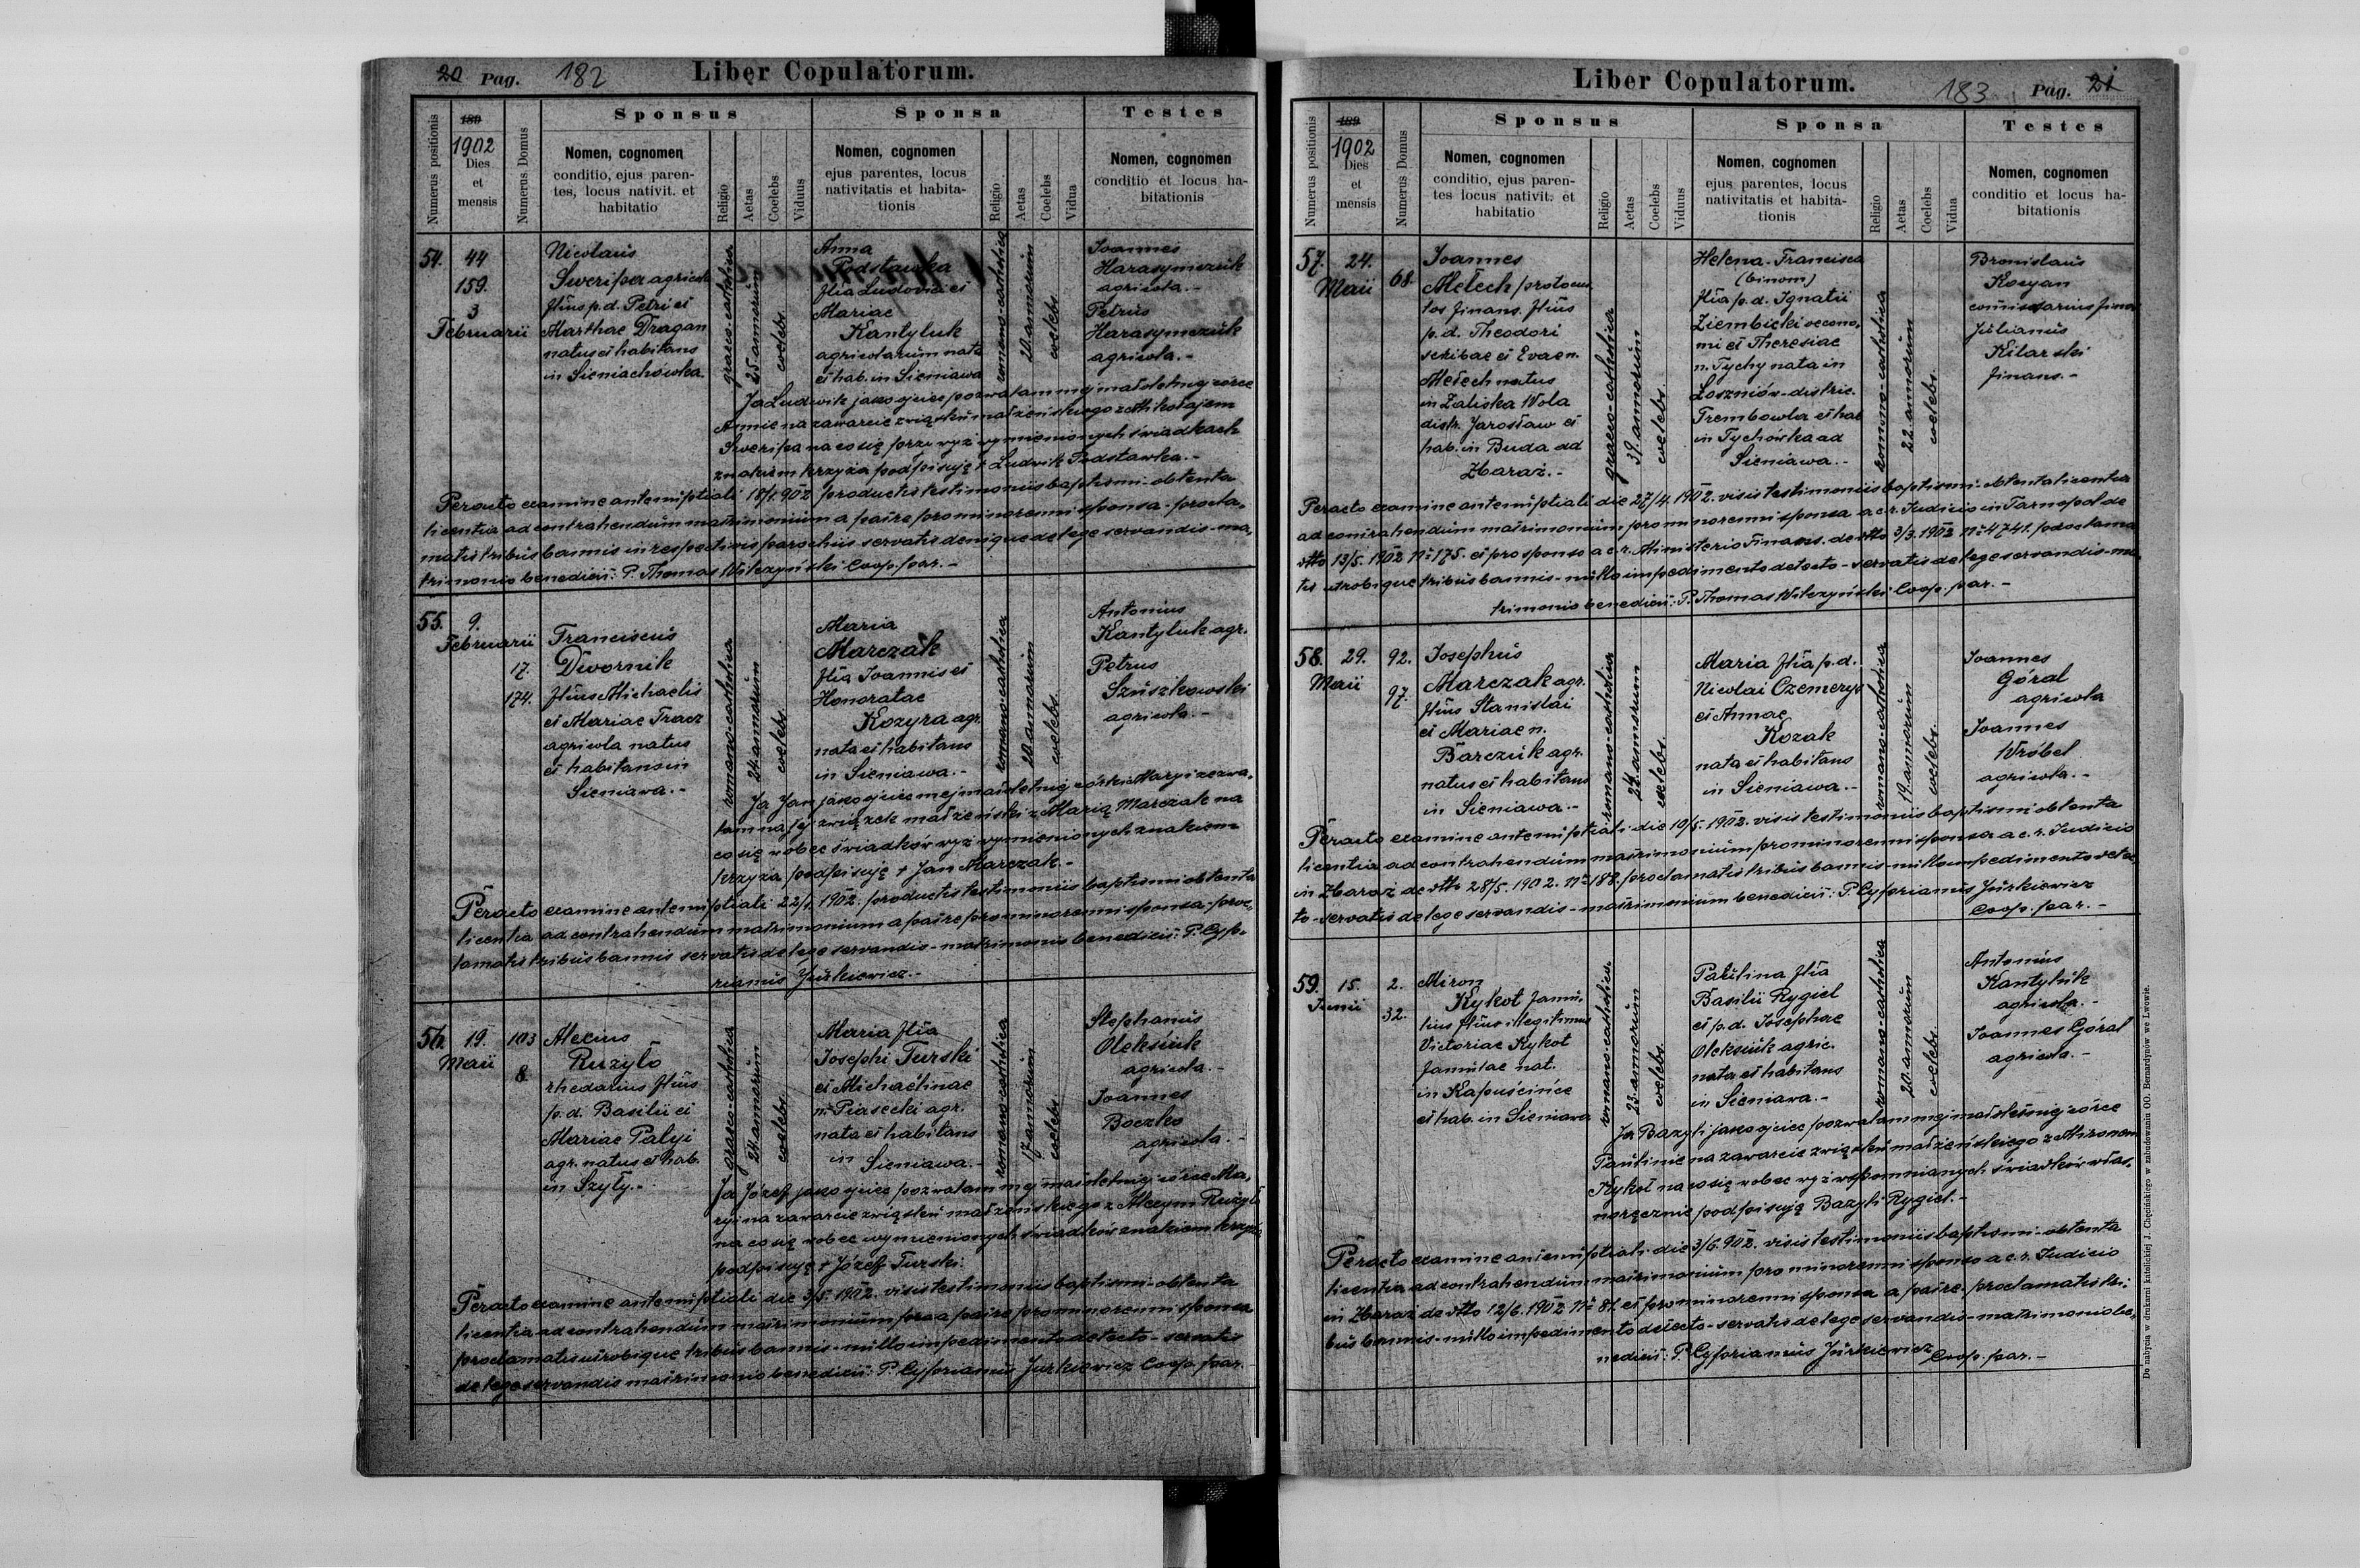 20 Pag. 182
Liber Copulatorum.
Numerus positionis
189
1902
Dies
et
mensis
Numerus Domus
Sponsus
Nomen, cognomen
conditio, ejus paren-
tes, locus nativit. et
habitatio
Religio
Aetas
Coelebs
Viduus
Sponsa
Nomen, cognomen
ejus parentes, locus
nativitatis et habita-
tionis
Religio
Aetas
Coelebs
Vidua
Testes
Nomen, cognomen
conditio et locus ha-
bitationis
54.
44
159.
3
Februarii
Nicolaus
Sweripa agricola
filius p.d. Petri et
Marthae Dragan
natus et habitans
in Sieniachówka.
graeco-catholica
25 annorum
coelebs.
Anna
Podstawka
filia Ludovici et
Mariae
Kantyluk
agricolarum nata
et hab. in Sieniawa
romano-catholica
20 annorum
coelebs.
Joannes
Harasymczuk
agricola.-
Petrus
Harasymczuk
agricola.-
Ja Ludwik jako ojciec pozwalam mej małoletniej córce
Annie na zawarcie związku małżeńskiego z Mikołajem
Sweripa na co się przy wyż wymienionych świadkach
znakiem krzyża podpisuję + Ludwik Podstawka.-
Peracto examine antenuptiali 18/1. 902 productis testimoniis baptismi - obtenta
licentia ad contrahendum matrimonium a patre pro minorenni sponsa - procla-
matis tribus bannis in respectivis parochiis servatis denique de lege servandis - ma-
trimonio benedixit: P. Thomas Wilczyński Coop. par.-
55.
9.
Februarii
17.
174.
Franciscus
Dwornik
filius Michaelis
et Mariae Tracz
agricola natus
et habitans in
Sieniawa.-
romano-catholica
24 annorum
coelebs.
Maria
Marczak
filia Joannis et
Honoratae
Kozyra agr.
nata et habitans
in Sieniawa.-
romano-catholica
20 annorum
coelebs.
Antonius
Kantyluk agr.
Petrus
Szuszkowski
agricola.-
Ja Jan jako ojciec mej małoletniej córki Maryi zezwa-
lam na jej związek małżeński z Marią Marczak na
co się wobec świadków wyż wymienionych znakiem
krzyża podpisuję + Jan Marczak.-
Peracto examine antenuptiali 22/1. 1902. productis testimoniis baptismi obtenta
licentia ad contrahendum matrimonium a patre pro minorenni sponsa - proc-
lamatis tribus bannis servatis de lege servandis - matrimonio benedixit: P. Cyp-
rianus Jurkiewicz.-
56.
19.
Maii
103
8.
Alexius
Ruzyło
rhedarius filius
p.d. Basilii et
Mariae Palyi
agr. natus et hab.
in Szyły.-
graeco-catholica
24 annorum
coelebs.
Maria filia
Josephi Turski
et Michaelinae
n. Piasecki agr.
nata et habitans
in Sieniawa.-
romano-catholica
17 annorum
coelebs.
Stephanus
Oleksiuk
agricola.-
Joannes
Boczko
agricola.-
Ja Józef jako ojciec pozwalam mej małoletniej córce Ma-
ryi na zawarcie związku małżeńskiego z Alexym Ruzyło
na co się wobec wymienionych świadków znakiem krzyża
podpisuję + Józef Turski.
Peracto examine antenuptiali die 3/5. 1902. visis testimoniis baptismi - obtenta
licentia ad contrahendum matrimonium a patre pro minorenni sponsa
proclamatis utrobique tribus bannis - nullo impedimento detecto - servatis
de lege servandis matrimonio benedixit: P. Cyprianus Jurkiewicz Coop. par.
Liber Copulatorum.
183 Pag. 21
Numerus positionis
189
1902
Dies
et
mensis
Numerus Domus
Sponsus
Nomen, cognomen
conditio, ejus paren-
tes locus nativit. et
habitatio
Religio
Aetas
Coelebs
Viduus
Sponsa
Nomen, cognomen
ejus parentes, locus
nativitatis et habita-
tionis
Religio
Aetas
Coelebs
Vidua
Testes
Nomen, cognomen
conditio et locus ha-
bitationis
57.
24.
Maii
68.
Joannes
Mełech protocul
tos finans. filius
p.d. Theodori
scribae et Evae n.
Mełech natus
in Zaliska Wola
distr. Jarosław et
hab. in Buda ad
Zbaraż.-
graeco-catholica
39. annorum
coelebs.
Helena - Francisca
(binom)
filia p.d. Ignatii
Ziembicki oecono-
mi et Theresiae
n. Tychy nata in
Łoszniów - distric.
Trembowla et hab
in Tychówka ad
Sieniawa.-
romano-catholica
22. annorum
coelebs.
Bronislaus
Kocyan
comissarius finan
Julianus
Kilarski
finans.-
Peracto examine antenuptiali die 27/4. 1902. visis testimoniis baptismi - obtenta licentia
ad contrahendum matrimonium, pro minorenni sponsa a c.r. Judicio in Tarnopol de
dtto 13/5. 1902 No 175. et pro sponso a c.r. Ministerio Finans. de dtto 3/3. 1902 No 4741. proclama
tis utrobique tribus bannis - nullo impedimento detecto - servatis de lege servandis - ma-
trimonio benedixit: P. Thomas Wilczyński Coop. par.-
58.
29.
Maii
92.
97.
Josephus
Marczak agr.
filius Stanislai
et Mariae n.
Barczuk agr.
natus et habitans
in Sieniawa.-
romano-catholica
24 annorum
coelebs.
Maria filia p.d.
Nicolai Czemerys
et Annae
Kozak
nata et habitans
in Sieniawa.-
romano-catholica
19. annorum
coelebs.
Joannes
Góral
agricola
Joannes
Wróbel
agricola.-
Peracto examine antenuptiali die 10/5. 1902. visis testimoniis baptismi obtenta
licentia ad contrahendum matrimonium pro minorenni sponsa a c.r. Judicio
in Zbaraż de dtto 28/5. 1902. No 188. proclamatis tribus bannis - nullo impedimento detec-
to - servatis de lege servandis - matrimonium benedixit: P. Cyprianus Jurkiewicz
Coop. par.-
59.
15.
Junii
2.
32.
Miron
Kykot famu-
lus filius illegitimus
Victoriae Kykot
famulae nat.
in Kapuścińce
et hab. in Sieniawa
romano-catholica.
23. annorum
coelebs.
Paulina filia
Basilii Rygiel
et p.d. Josephae
Oleksiuk agric.
nata et habitans
in Sieniawa.-
romano-catholica
20. annorum
coelebs.
Antonius
Kantyluk
agricola.-
Joannes Góral
agricola.-
Ja Bazyli jako ojciec pozwalam mej małoletniej córce
Paulinie na zawarcie związku małżeńskiego z Mironem
Kykot na co się wobec wyż wspomnianych świadków włas-
noręcznie podpisuję Bazyli Rygiel.-
Peracto examine antenuptiali die 3/6. 902. visis testimoniis baptismi - obtenta
licentia ad contrahendum matrimonium pro minorenni sponso a c.r. Judicio
in Zbaraż de dtto 12/6. 1902 No 81. et pro minorenni sponsa a patre - proclamatis tri-
bus bannis - nullo impedimento detecto - servatis de lege servandis - matrimonio be-
nedixit: P. Cyprianus Jurkiewicz Coop. par.-
Do nabycia w drukarni katolickiej J. Chęcińskiego w zabudowaniu OO. Bernardynów we Lwowie.